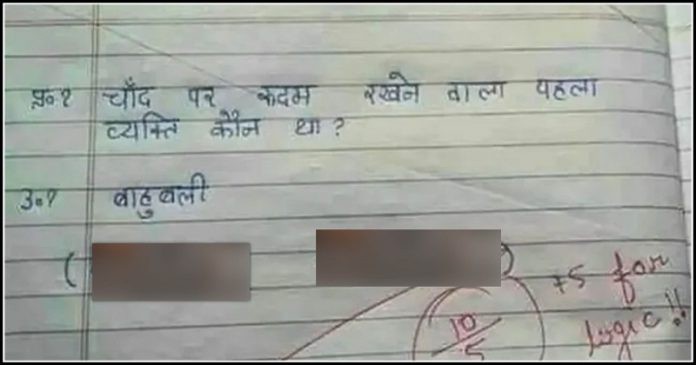 प्र॰१ चाँद पर कदम रखने वाला पहला
व्यक्ति कौन था ?
उ॰१ बाहुबली
( )
+5 for
logic !!
10/5